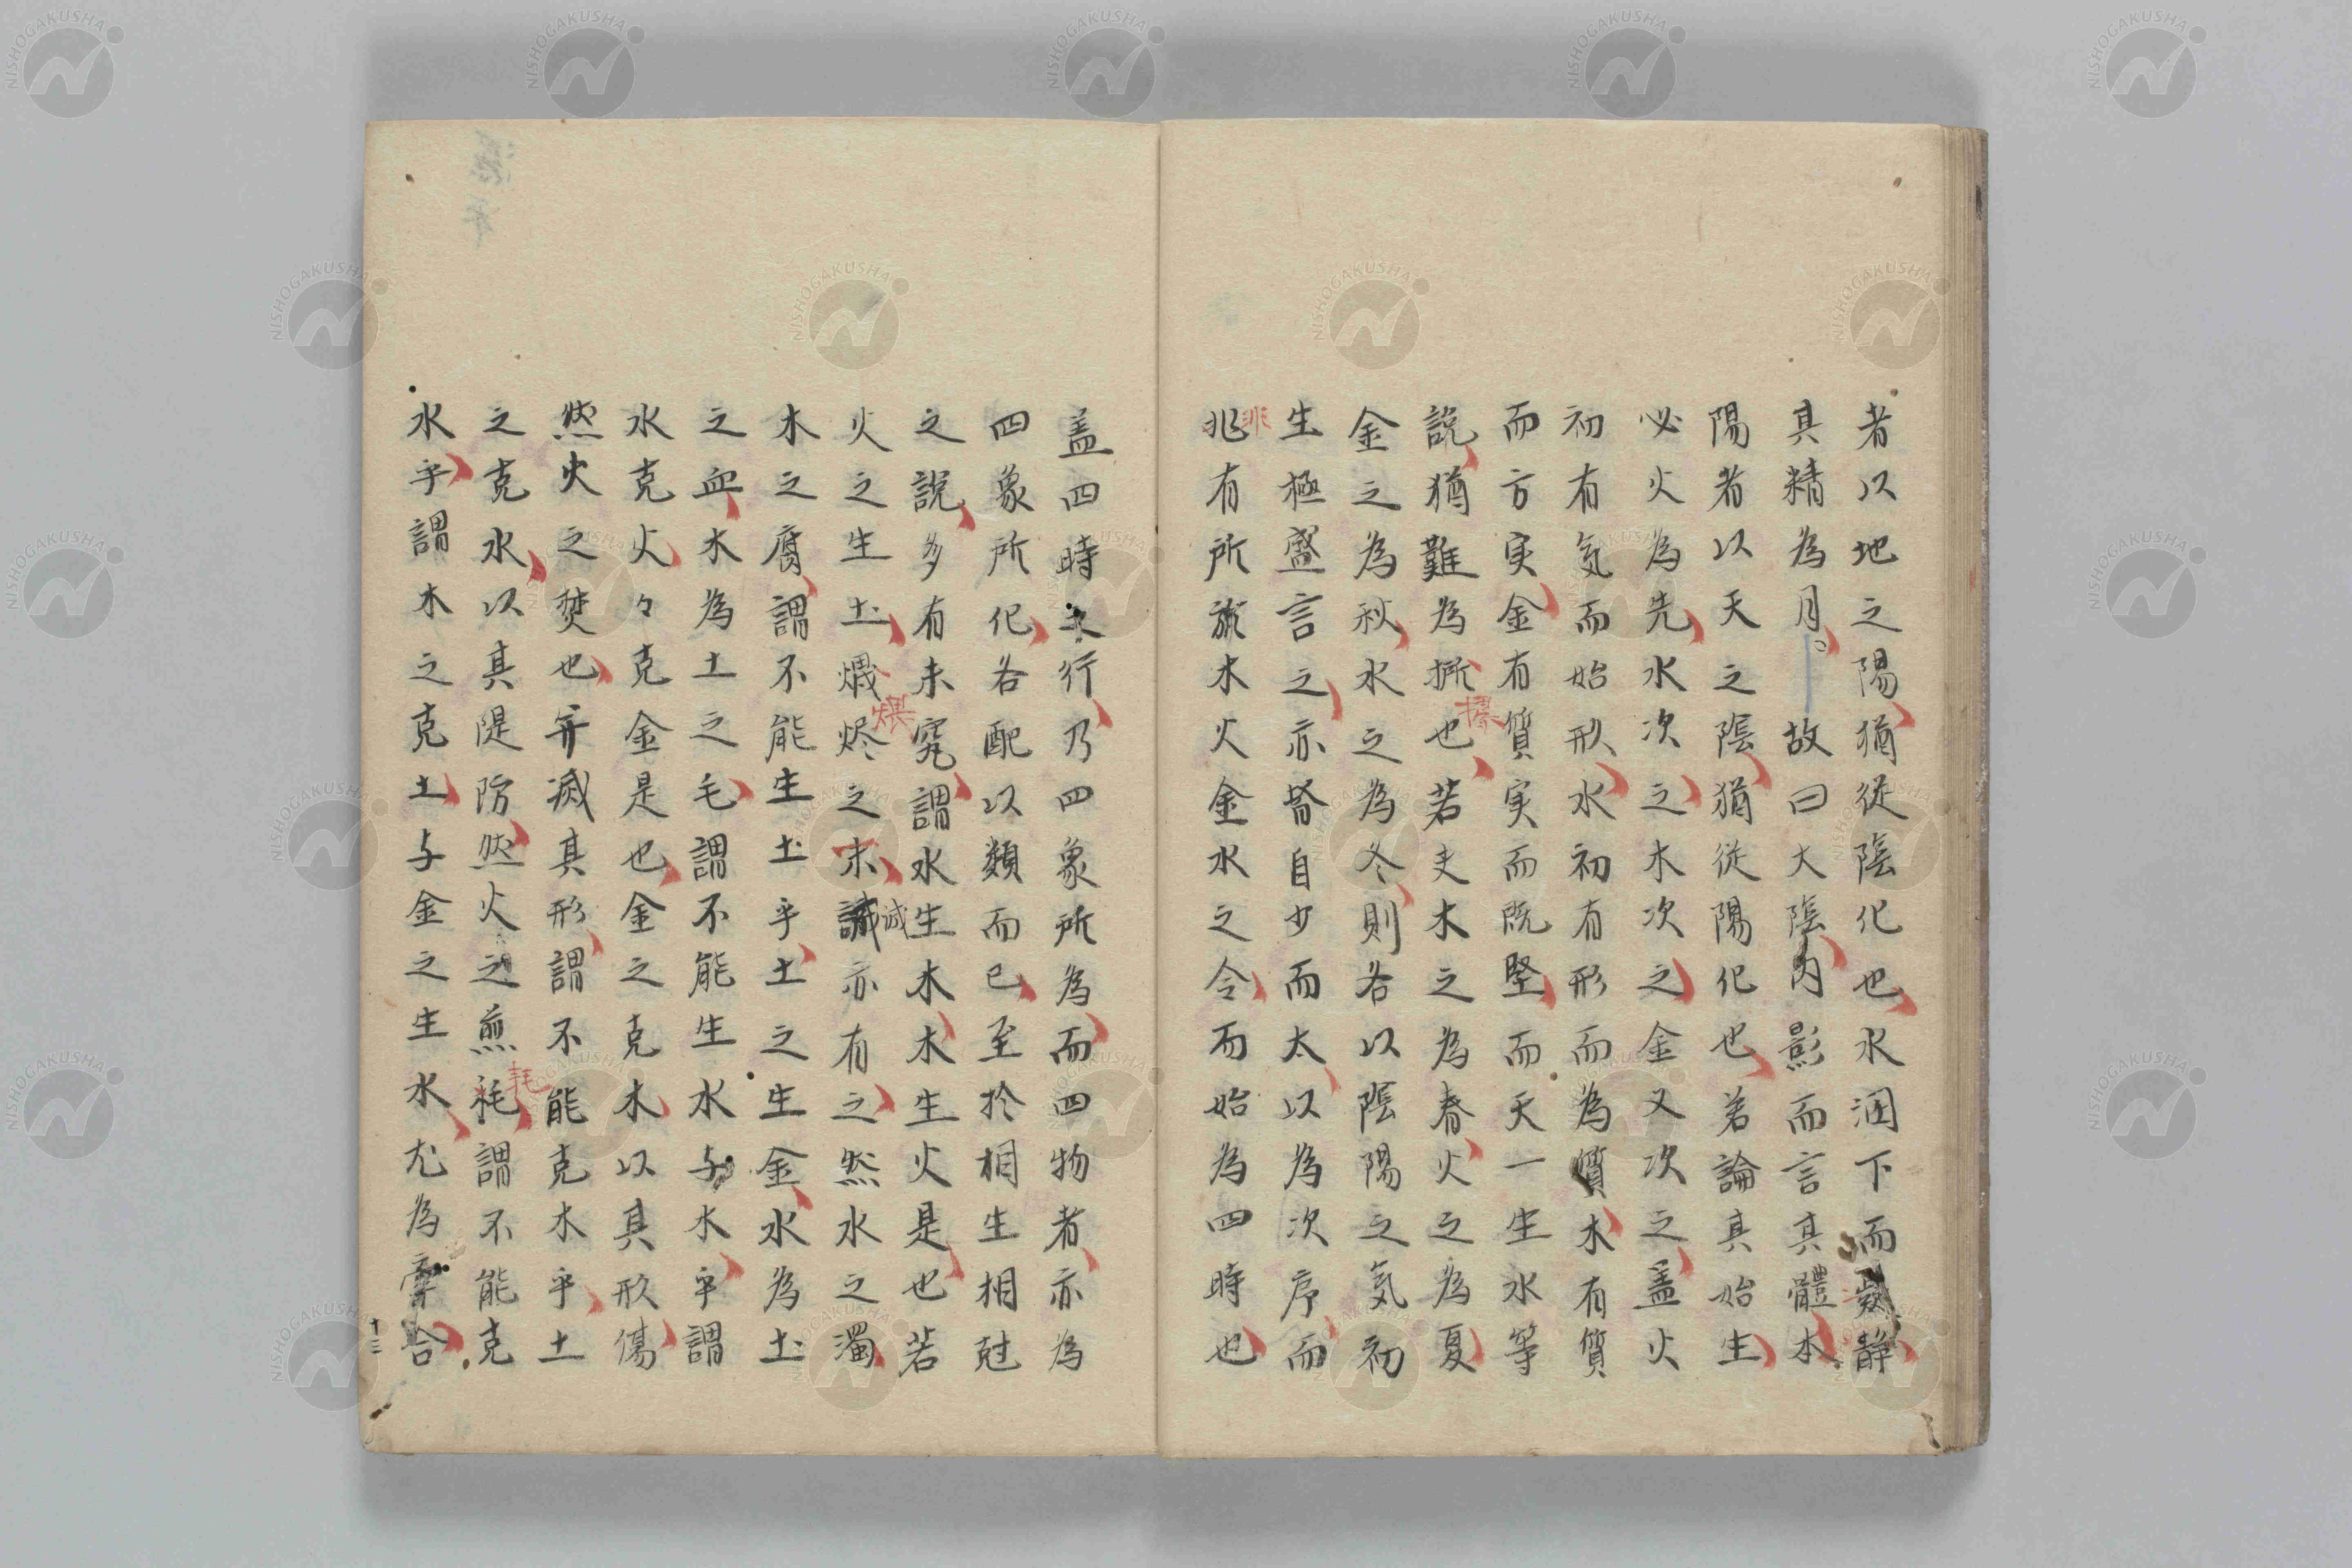 者以地之陽猶従陰化也水潤下而凝静
其精為月故曰大陰内影而言其體木
陽者以天之陰猶従陽化也若論其始生
必火為先水次之木次之金又次之盖火
初有気而始形水初有形而為質木有質
而方実金有質実而既堅而天一生水等
説猶難為拠也若夫木之為春火之為夏
金之為秋水之為冬則各以陰陽之気初
生極盛言之亦皆自少而太以為次序而
兆有所 木火金水之令而始為四時也
盖四時之行乃四象所為而四物者亦為
四象所化各配以類而已至於相生相尅
之説多有未究謂水生木木生火是也若
火之生土 燼之末誠亦有之然水之濁
木之腐謂不能生土乎土之生金水為土
之血木為土之毛謂不能生水与木乎謂
水克火々克金是也金之克木以其形傷
然火之焚也并滅其形謂不能克木乎土
之克水以其隄防然火之煎耗謂不能克
水乎謂木之克土与金之生水尤為牽合
非
煨
誠
耗
十三
NISHOGAKUSHA